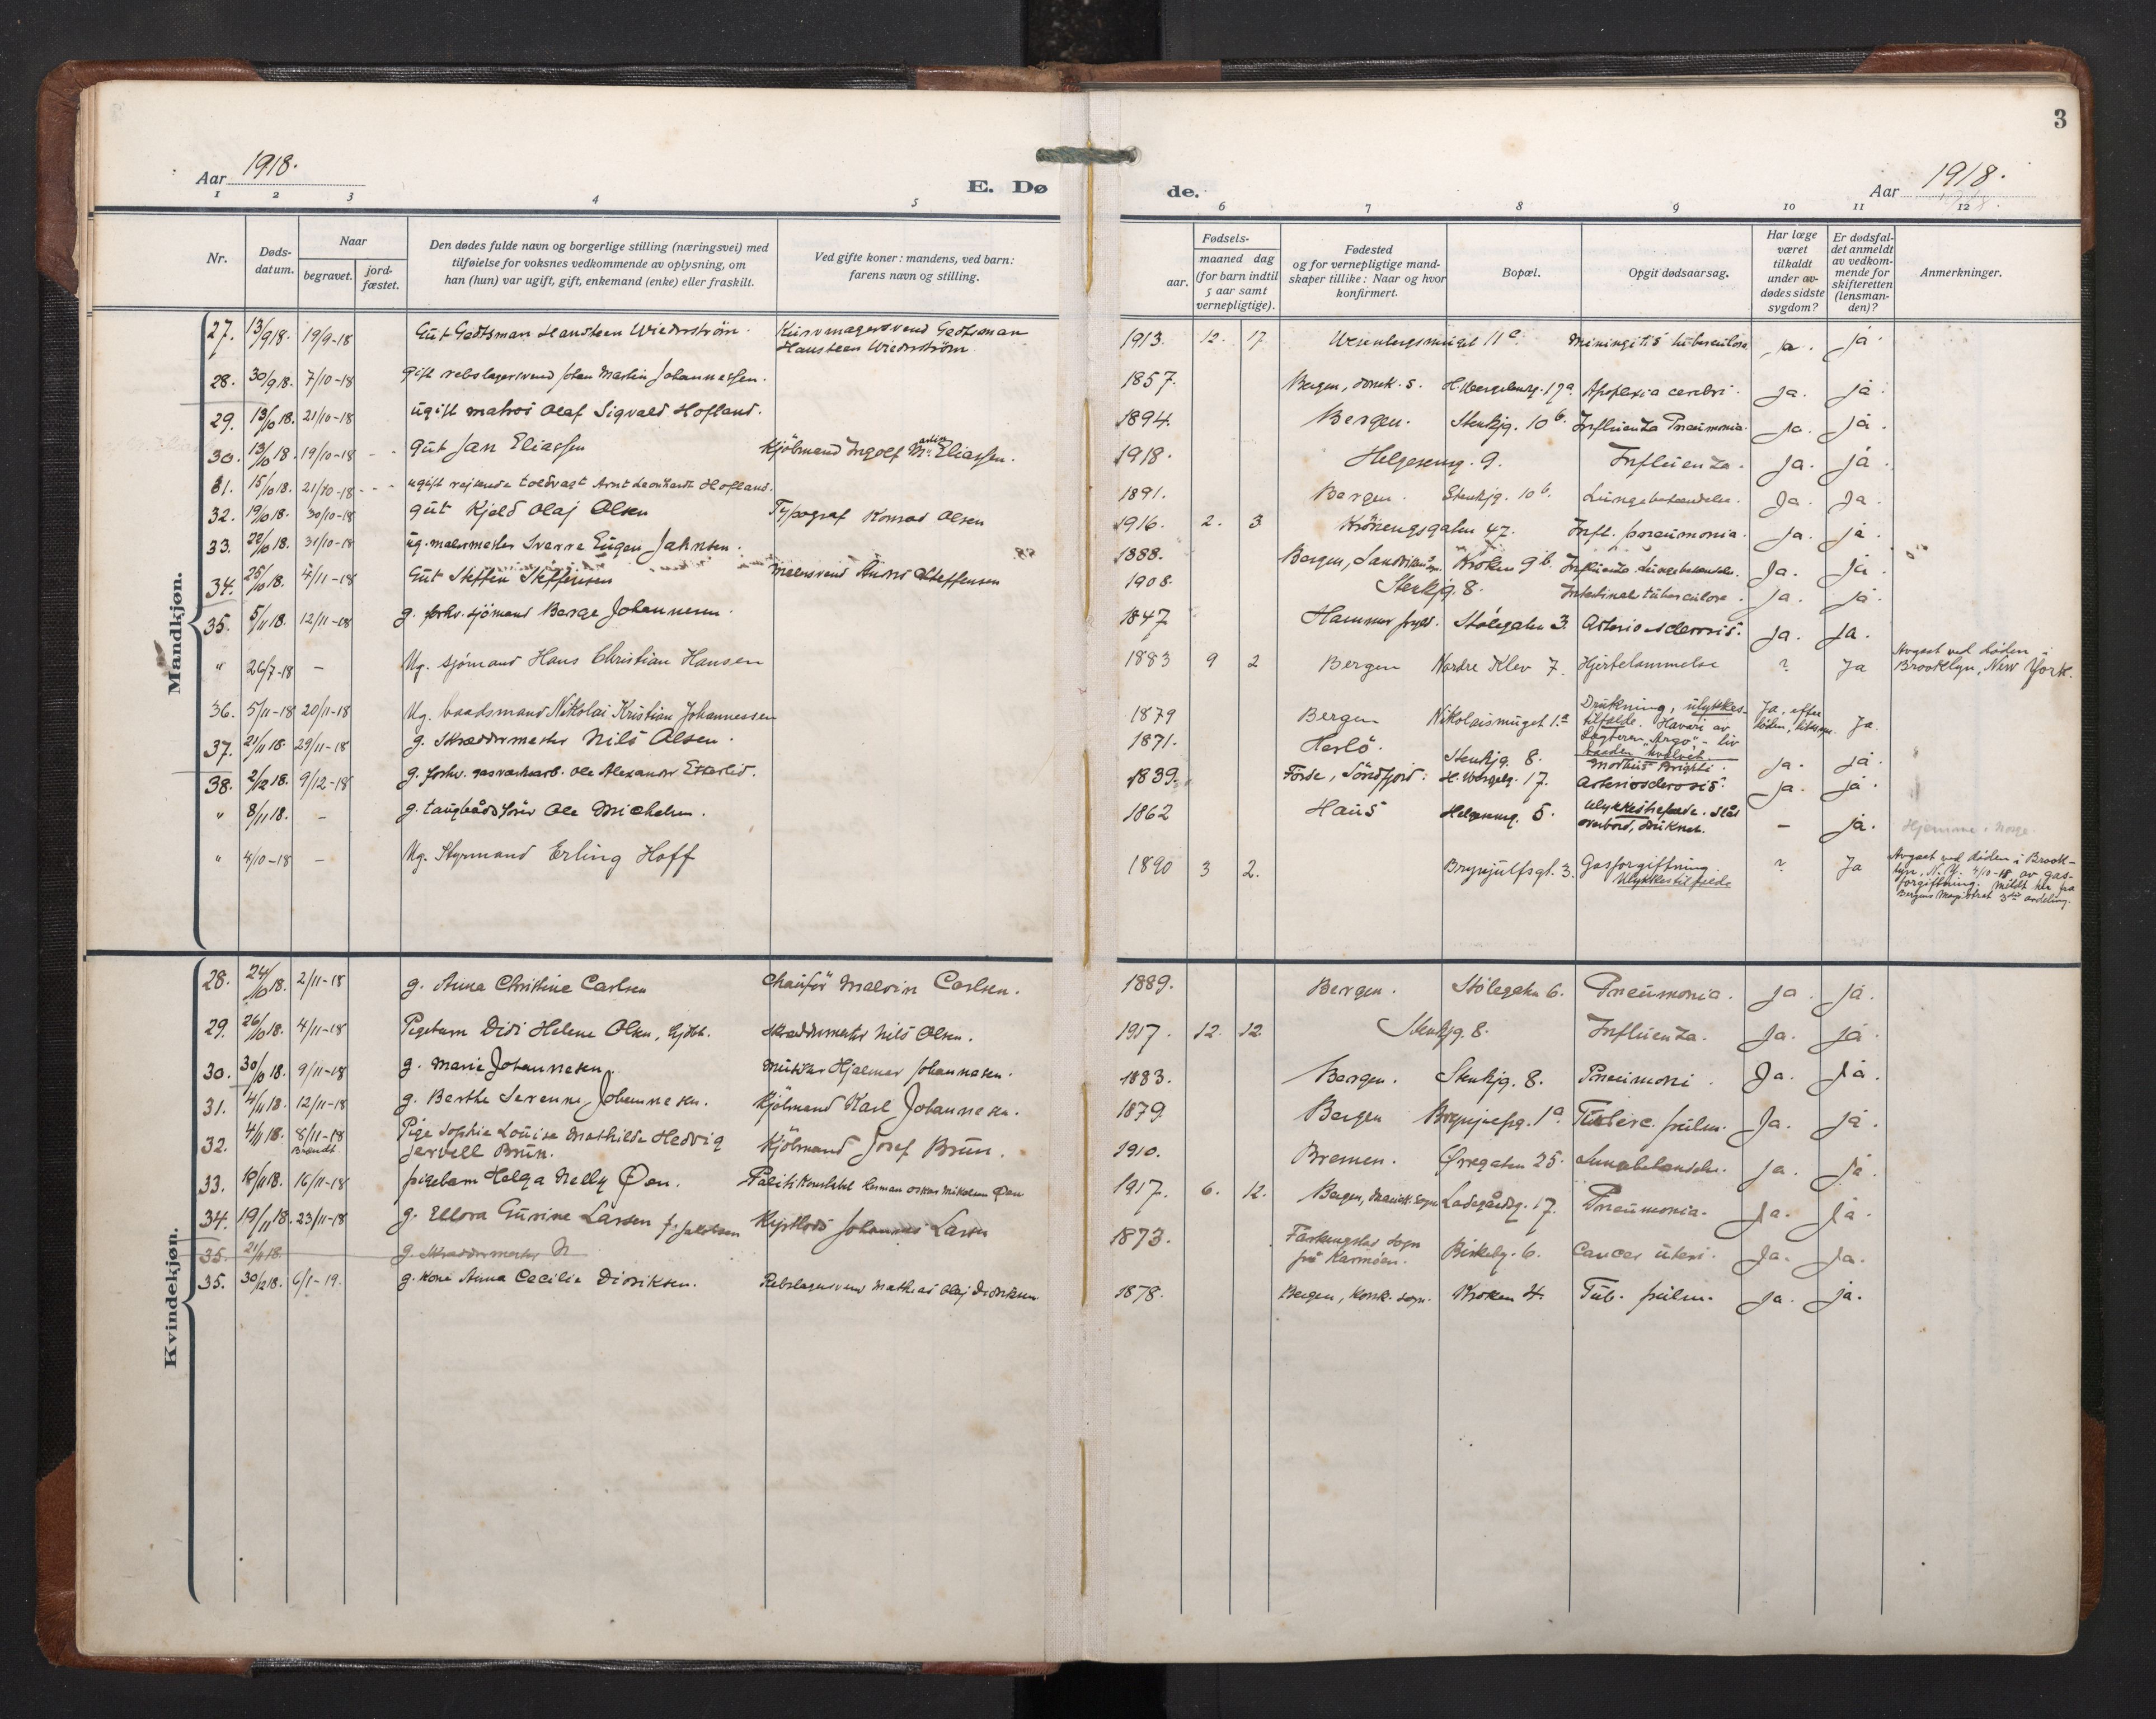 3
Aar 1918.
E. Dø
de.
Aar 1918.
1 2 3 4 5 6 7 8 9 10 11 12
Nr.
Døds-
datum.
Naar
begravet.
jord-
fæstet.
Den dødes fulde navn og borgerlige stilling (næringsvei) med
tilføielse for voksnes vedkommende av oplysning, om
han (hun) var ugift, gift, enkemand (enke) eller fraskilt.
Ved gifte koner: mandens, ved barn:
farens navn og stilling.
Fødsels-
aar.
maaned dag
(for barn indtil
5 aar samt
vernepligtige).
Fødested
og for vernepligtige mand-
skaper tillike: Naar og hvor
konfirmert.
Bopæl.
Opgit dødsaarsag.
Har læge
været
tilkaldt
under av-
dødes sidste
sygdom?
Er dødsfal-
det anmeldt
av vedkom-
mende for
skifteretten
(lensman-
den)?
Anmerkninger.
Mandkjøn.
27. 13/9 18. 19/9-18 Gut Gerhsman Hansteen Wiederstrøm. 1913. 12. 17 11 a. ja. ja.
Hansteen Wiederstrøm.
28. 30/9 18. 7/10-18 gift rebslagersvend Johan Martin Johannessen. 1857. Bergen, domk. s. 17a Apoplexia cerebri. Ja. ja.
29. 13/10 18. 21/10-18 ugift matros Olaf Sigvald Hofland. 1894. Bergen. Stenkjg. 10 b. Influenza Pneumonia. Ja. ja.
30. 13/10 18. 19/10-18 gut Jan Eliassen Kjöbmand Ingolf Martin Eliassen. 1918. Helgesensg. 9. Influenza. Ja. ja.
31. 15/10 18. 21/10-18 ugift reisende toldvagt Arnt Leonhardt Hofland. 1891. Bergen. Stenkjg. 10 b. Lungebetændelse. Ja. Ja.
32. 19/10 18. 30/10-18 gut Kjeld Olaj Olsen Typograf Konrad Olsen 1916. 2. 3 Kröneugsgaten 47. Infl. pneumonia. Ja. ja.
33. 22/10 18. 31/10-18 ug. malermester Sverre Eugen Jahnsen. 1888. Bergen, Kroken 9 b. Influenza Lungebetændelse. Ja. ja.
34. 25/10 18. 4/11-18 Gut Steffen Steffensen Malersvend Steffensen 1908. Stenkjg. 8. Intestinal tuberculose. Ja. ja.
35. 5/11 18. 12/11-18 g. forhv. sjömand Berge Johannesen. 1847 Hammer Stølegaten 3. Arteriosclerosis. Ja. ja.
" 26/7-18 – Ug. sjömand Hans Christian Hansen 1883 9 2 Bergen Nordre Klev 7. Hjertelammelse ? Ja Avgaat ved döden i
Brooklyn, New York.
36. 5/11-18 20/11-18 Ug. baadsmand Nikolai Kristian Johannessen 1879 Bergen Nikolaismuget 1.a Drukning, ulykkes-
tilfælde. Havari av
Lægteren "Argo", - liv
baaden hvelvet. Ja, efter döden, Ja.
37. 21/11 18. 29/11-18 g. Skræddermester Nils Olsen. 1871. Herlö. Stenkjg. 8. Morbus Brighti. Ja. ja.
38. 2/12 18. 9/12-18 g. forhv. gasverksarb. Ole Alexander 1839. Förde, Söndfjord. H. Wergelg. 17. Arteriosclerosis. Ja. ja.
" 8/11 18. – g. taugbådsförer Ole Michelsen. 1862 Haus Helgesensg. 5. Ulykkestilfælde. Slåt
overbord, druknet. – ja. Hjemme i Norge.
" 4/10-18 – Ug. Styrmand Erling Hoff 1890 3 2. Brynjulfsgt. 3. Gasforgiftning.
Ulykkestilfælde ? Ja Avgaat ved döden i Brook-
lyn, N. Y. 4/10-18 av gas-
forgiftning. Meldt her fra
Bergens Magistrat 3die avdeling.
Kvindekjøn.
28. 24/10 18. 2/11-18 g. Anna Christine Carlsen Chauför Malvin Carlsen. 1889. Bergen. Stölegaten 6. Pneumonia. Ja. ja.
29. 26/10 18. 4/11-18 Pigebarn Didi Helene Olsen, hjdbt. Skræddermester Nils Olsen. 1917. 12. 12. Stenkjg. 8. Influenza. Ja. ja.
30. 30/10 18. 9/11-18 g. Marie Johannesen. Musiker Hjalmar Johannesen. 1883. Bergen. Stenkjg. 8. Pneumoni. Ja. ja.
31. 4/11 18. 12/11-18 g. Berthe Serenne Johannesen. Kjöbmand Karl Johannesen. 1879 Bergen 1a Tuberc. pulm. Ja. ja.
32. 4/11 18. 8/11-18
Brændt. Pige Sophie Louise Mathilde Hedvig
Jervell Brun. Kjöbmand Josef Brun. 1910. Bremen. Øvregaten 25. Ja. ja.
33. 10/11 18. 16/11-18 pigebarn Helga Nelly Øen. Politikonstabel Herman Oskar Mikalsen Øen 1917. 6. 12. Bergen, Ladegårdsg. 17. Pneumonia. Ja. ja.
34. 19/11 18. 23/11-18 g. Ellora Gurine Larsen f. Jakobsen Kystlods Johannes Larsen 1873. Færkingstad sogn
på Karmöen. Birkebg. 6. Cancer uteri. Ja. ja.
35. 21/11 18. g. Skræddermester N
35. 30/12 18. 6/1-19. g. kone Anna Cecilie Didriksen. Rebslagersvend Mathias Olaj Didriksen 1878. Bergen, korsk. sogn. Kroken 4. Tub. pulm. Ja. ja.